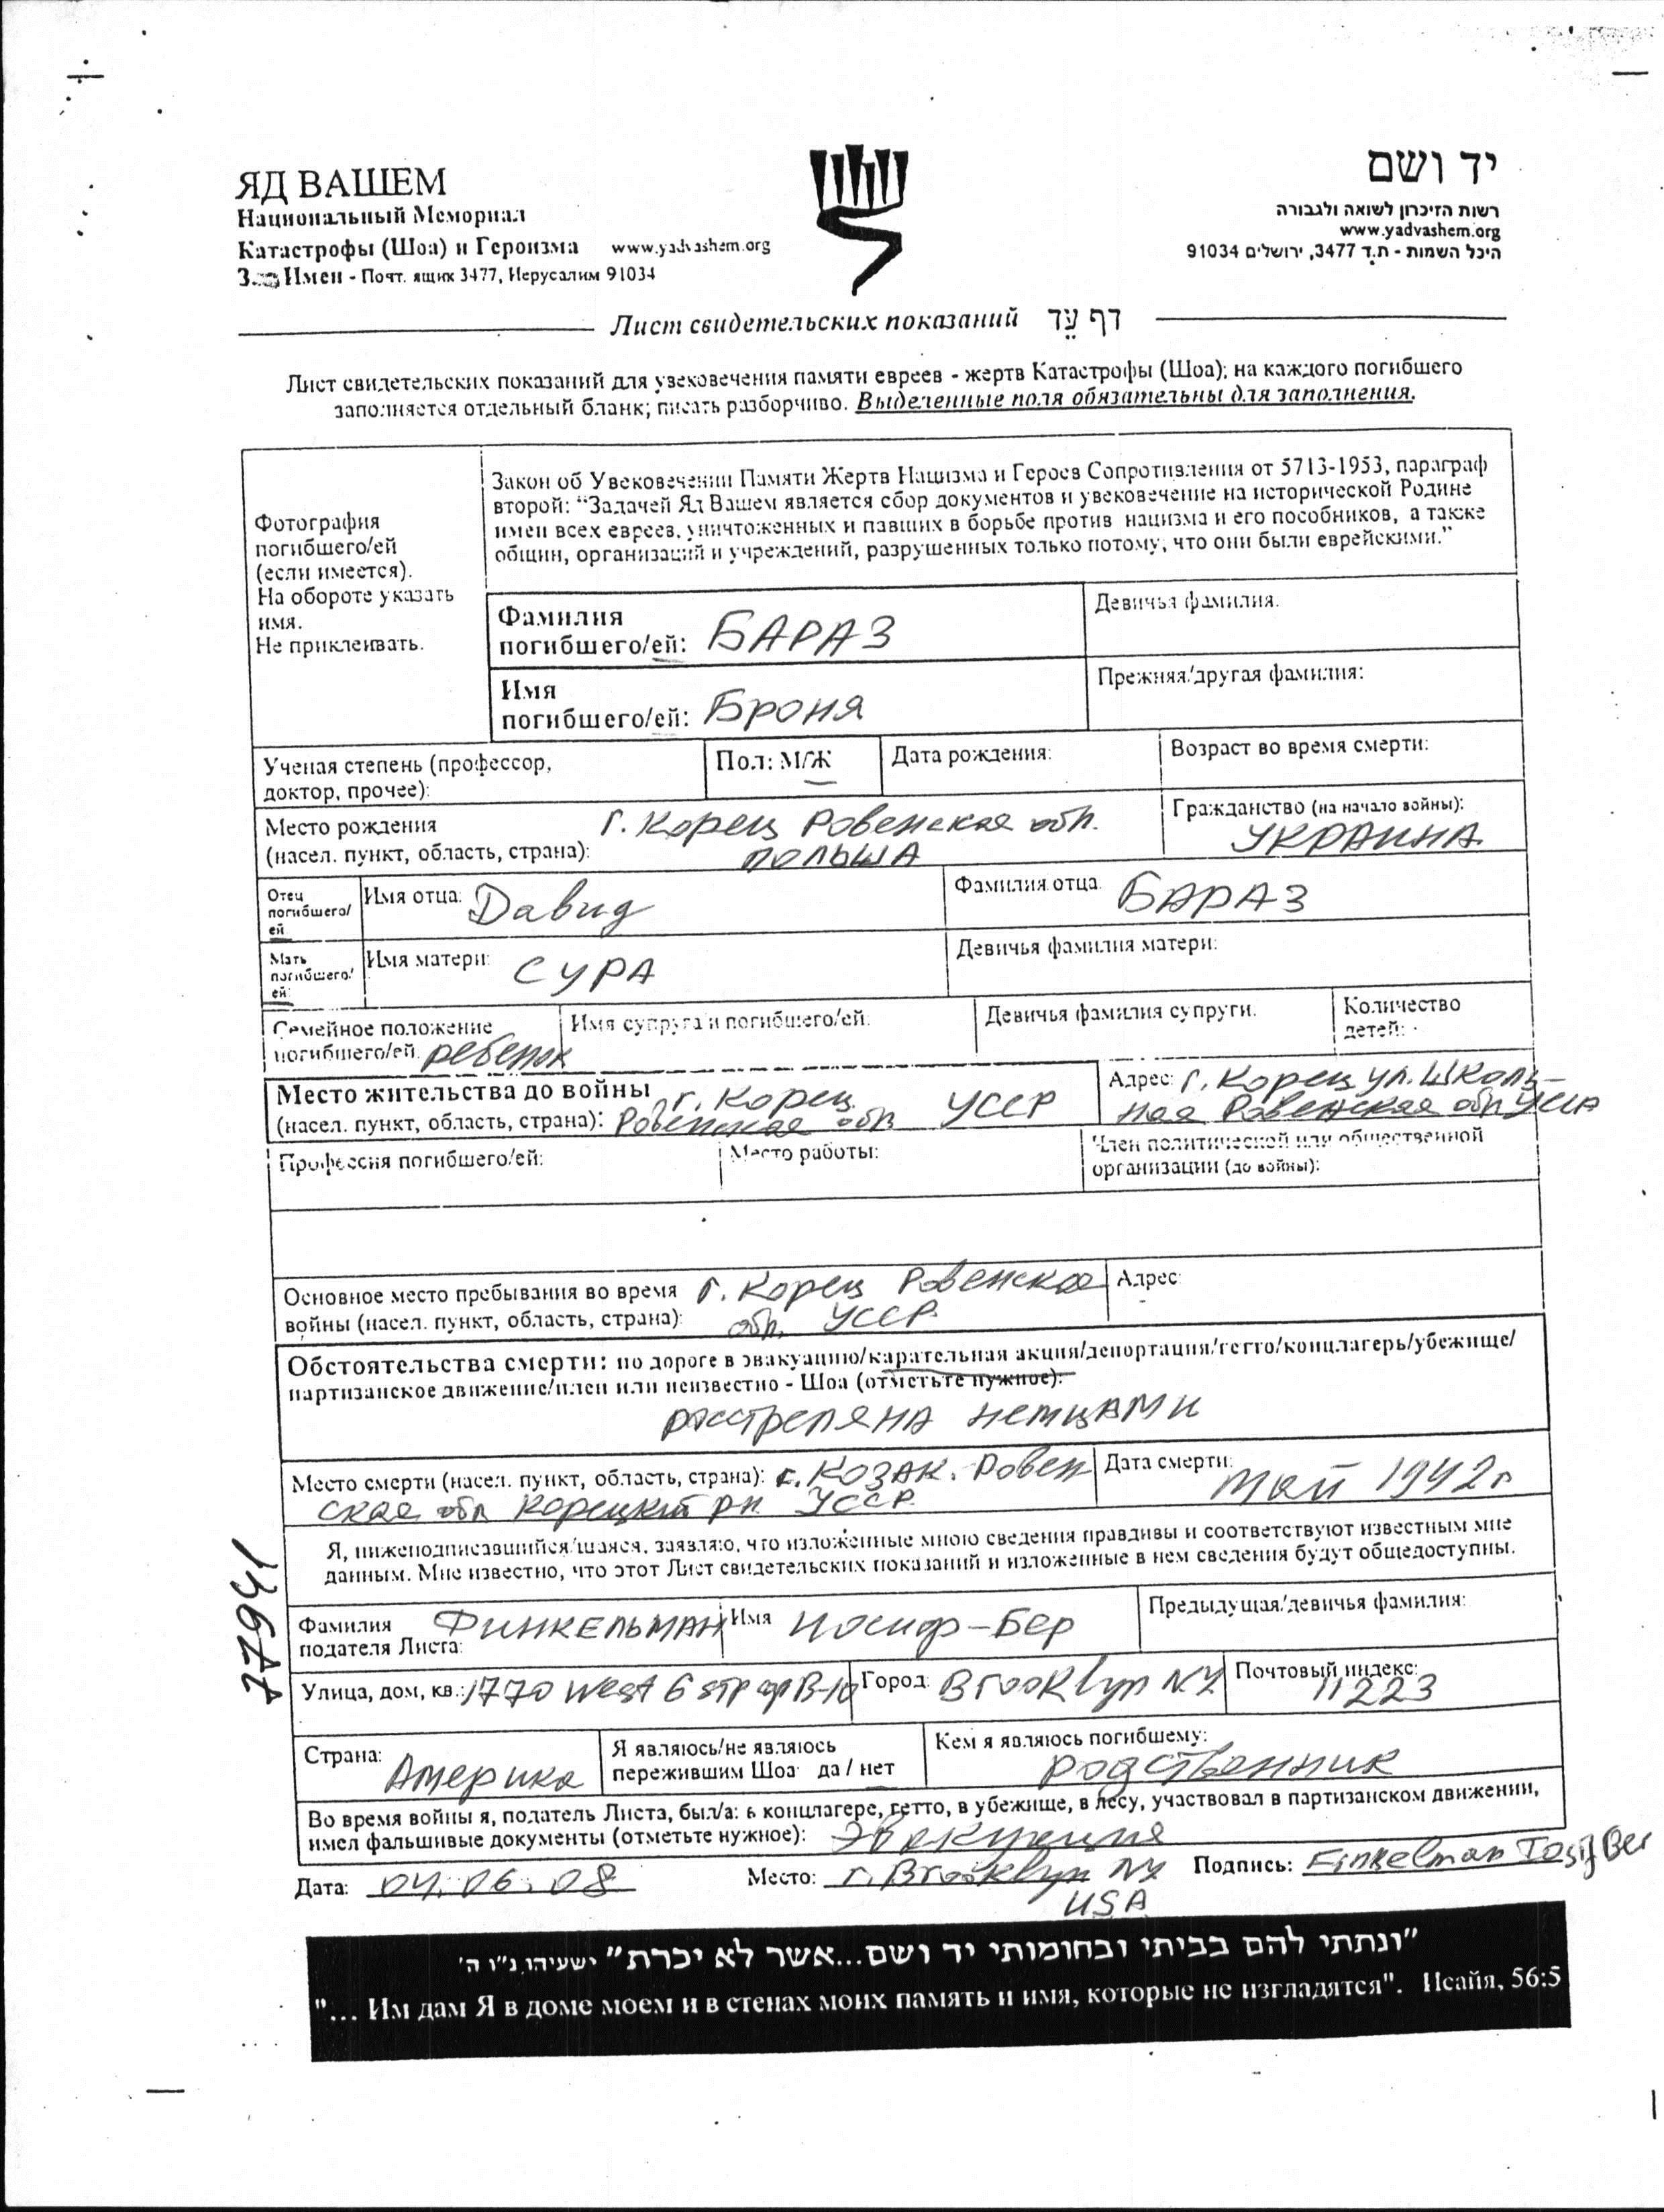 ЯД ВАШЕМ
Национальный Мемориал
Катастрофы (Шоа) и Героизма www.yadvashem.org
Имен - Почт. ящик 3477, Иерусалим 91034
יד ושם
רשות הזיכרון לשואה ולגבורה
www.yadvashem.org
היכל השמות - ת.ד 3477, ירושלים 91034
Лист свидетельских показаний דף עֵד
Лист свидетельских показаний для увековечения памяти евреев - жертв Катастрофы (Шоа); на каждого погибшего
заполняется отдельный бланк; писать разборчиво. Выделенные поля обязательны для заполнения.
Фотография
погибшего/ей
(если имеется).
На обороте указать
имя.
Не приклеивать.
Закон об Увековечении Памяти Жертв Нацизма и Героев Сопротивления от 5713-1953, параграф
второй: “Задачей Яд Вашем является сбор документов и увековечение на исторической Родине
имен всех евреев, уничтоженных и павших в борьбе против нацизма и его пособников, а также
общин, организаций и учреждений, разрушенных только потому, что они были еврейскими.”
Фамилия
погибшего/ей: БАРАЗ
Девичья фамилия:
Имя
погибшего/ей: Броня
Прежняя/другая фамилия:
Ученая степень (профессор,
доктор, прочее):
Пол: М/Ж
Дата рождения:
Возраст во время смерти:
Место рождения г. Корец Ровенская обл.
(насел. пункт, область, страна): ПОЛЬША
Гражданство (на начало войны):
УКРАИНА
Отец
погибшего/
ей
Имя отца: Давид
Фамилия отца: БАРАЗ
Мать
погибшего/
ей:
Имя матери: СУРА
Девичья фамилия матери:
Семейное положение
погибшего/ей: ребенок
Имя супруга/и погибшего/ей:
Девичья фамилия супруги:
Количество
детей:
Место жительства до войны г. Корец
(насел. пункт, область, страна): Ровенская обл УССР
Адрес: г. Корец ул. Школь-
ная Ровенская обл
Профессия погибшего/ей:
Место работы:
Член политической или общественной
организации (до войны):
Основное место пребывания во время г. Корец Ровенская
войны (насел. пункт, область, страна): обл. УССР
Адрес:
Обстоятельства смерти: по дороге в эвакуацию/карательная акция/депортация/гетто/концлагерь/убежище/
партизанское движение/плен или неизвестно - Шоа (отметьте нужное):
расстреляна немцами
Место смерти (насел. пункт, область, страна): с. КОЗАК. Ровен
ская обл Корецкий рн. УССР
Дата смерти:
май 1942г
Я, нижеподписавшийся/шаяся, заявляю, что изложенные мною сведения правдивы и соответствуют известным мне
данным. Мне известно, что этот Лист свидетельских показаний и изложенные в нем сведения будут общедоступны.
77941
Фамилия
подателя Листа: ФИНКЕЛЬМАН
Имя Иосиф-Бер
Предыдущая/девичья фамилия:
Улица, дом, кв.: 1770 West 6 стр ар B-10
Город: Brooklyn NY
Почтовый индекс:
11223
Страна: Америка
Я являюсь/не являюсь
пережившим Шоа да / нет
Кем я являюсь погибшему:
родственник
Во время войны я, податель Листа, был/а: в концлагере, гетто, в убежище, в лесу, участвовал в партизанском движении,
имел фальшивые документы (отметьте нужное): Эвакуация
Дата: 04.06.08
Место: г. Brooklyn NY
USA
Подпись: Finkelman Iosif Ber
"ונתתי להם בביתי ובחומותי יד ושם...אשר לא יכרת" ישעיהו נ"ו ה'
"... Им дам Я в доме моем и в стенах моих память и имя, которые не изгладятся". Исайя, 56:5